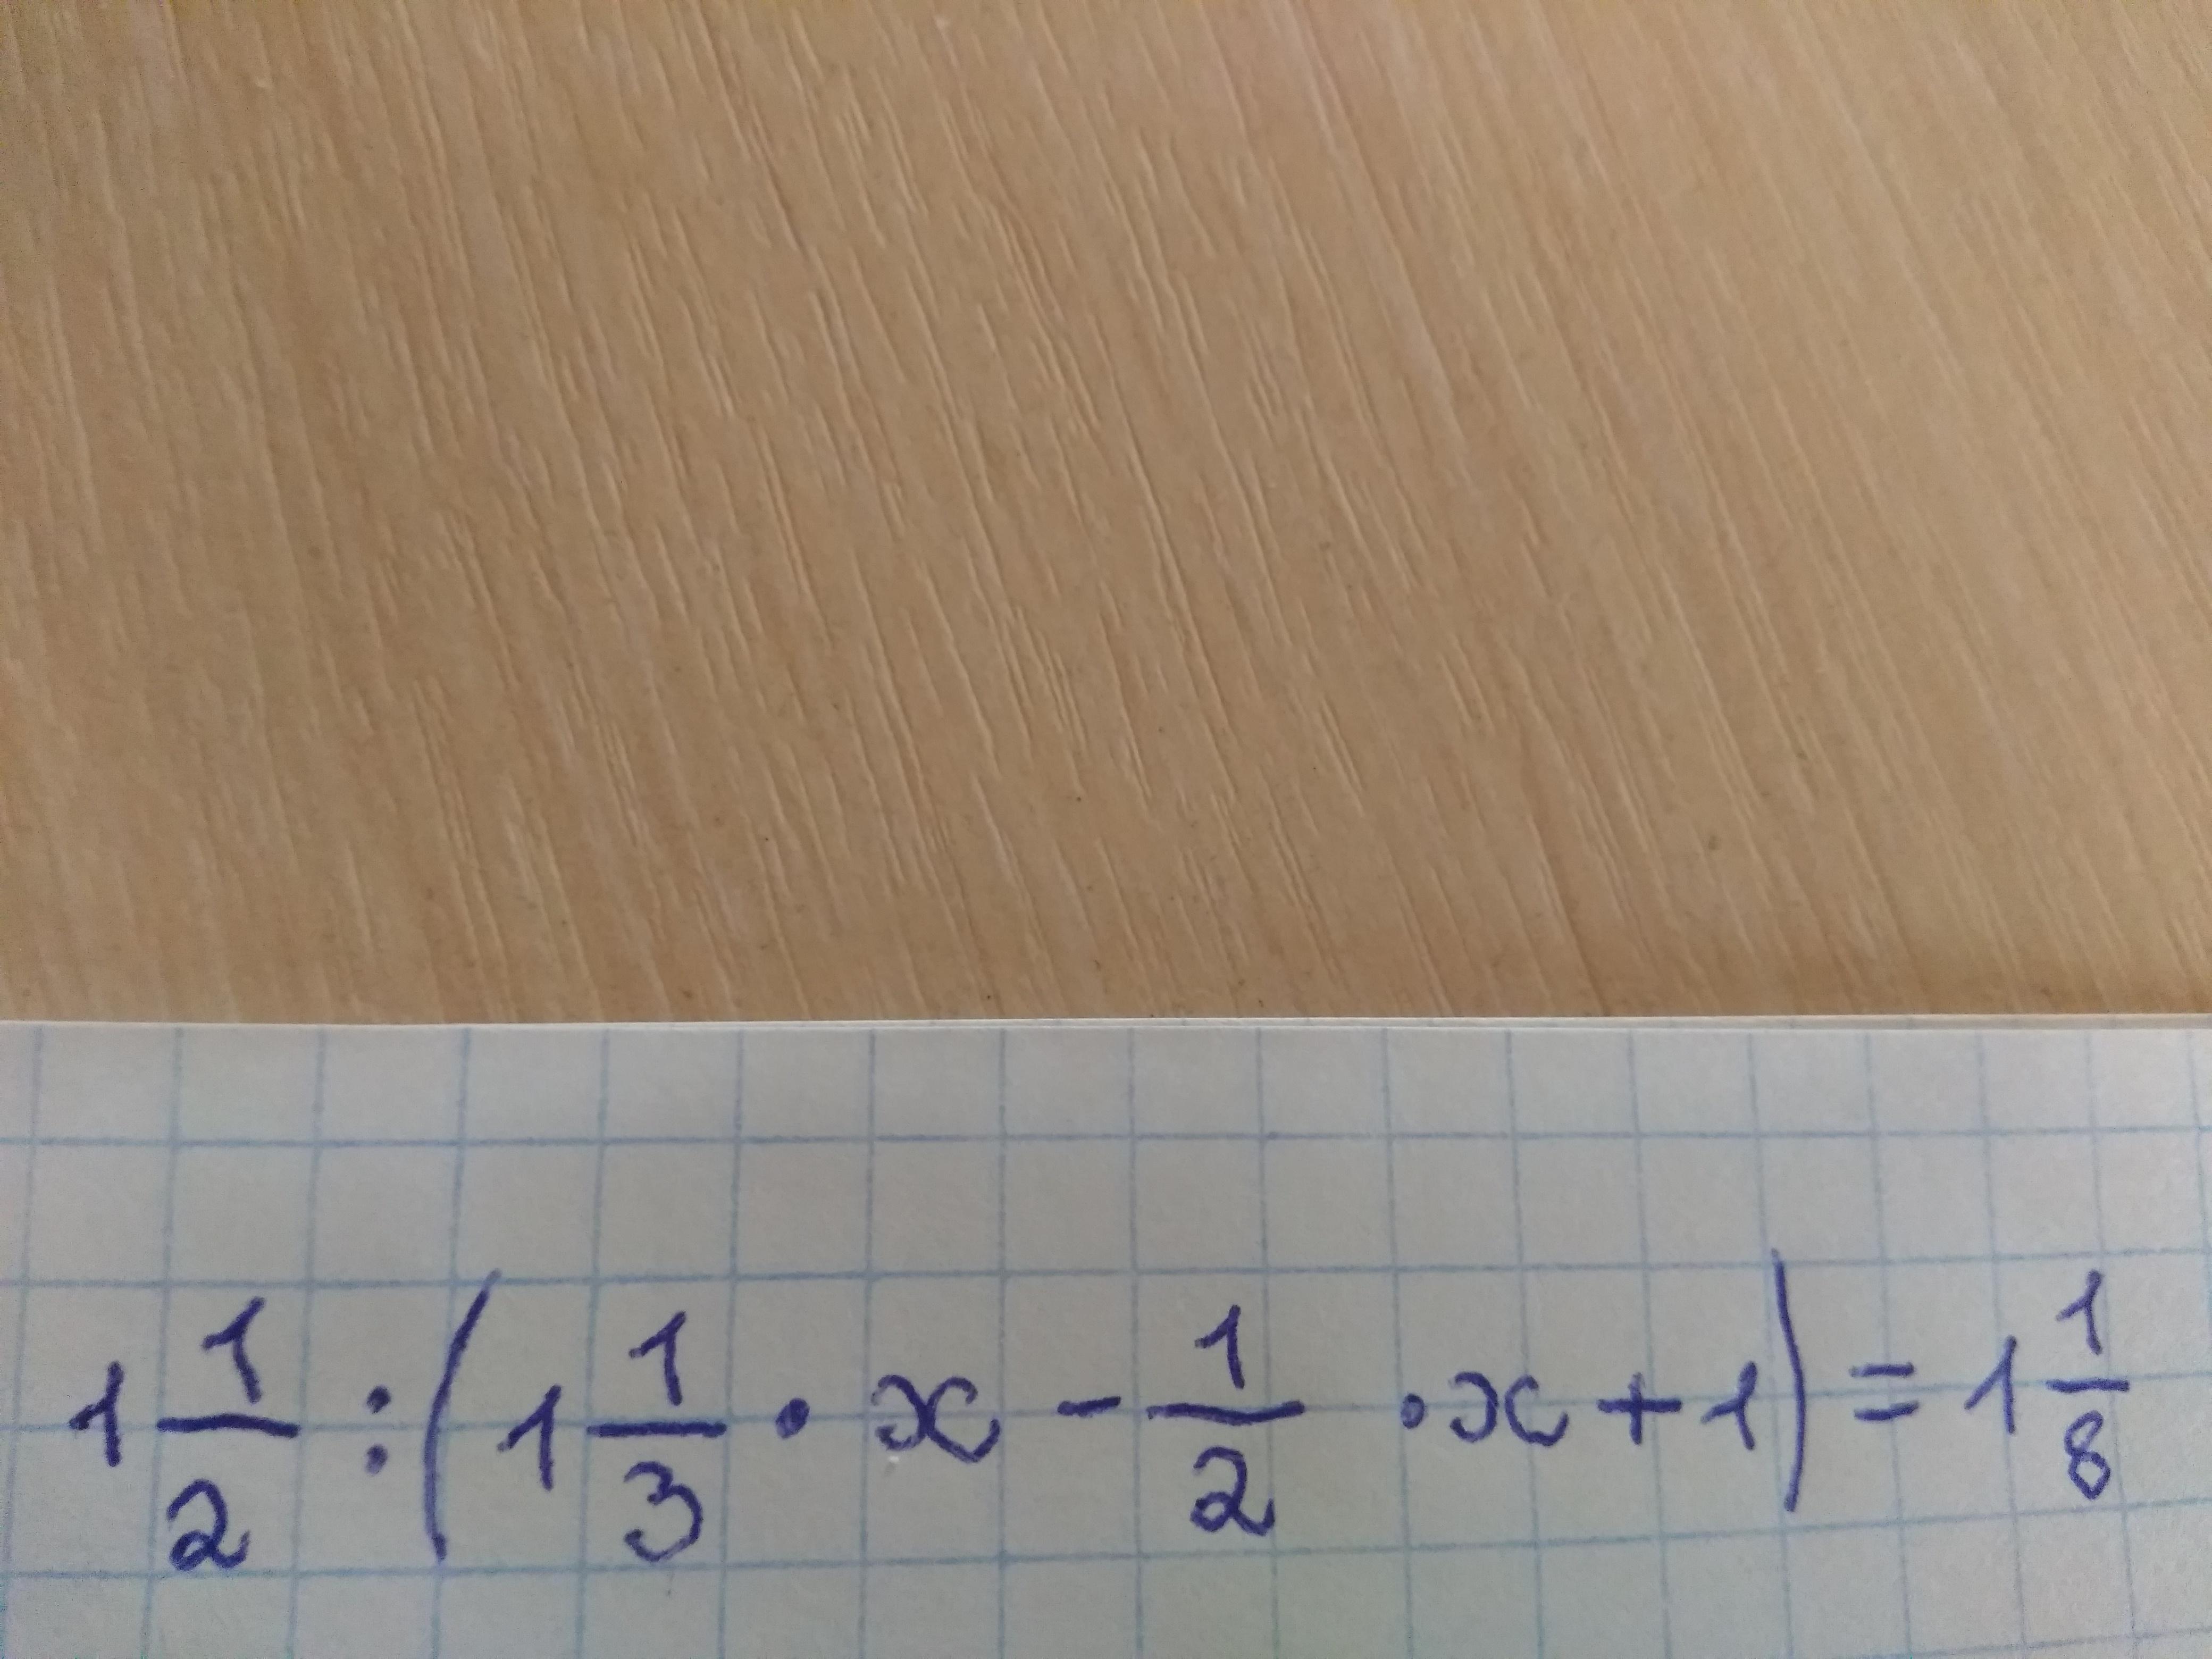 1 1/2 : (1 1/3 · x - 1/2 · x + 1) = 1 1/8